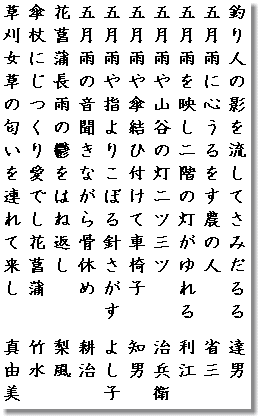 釣り人の影を流してさみだるる　達男
五月雨に心うるをす農の人　省三
五月雨を映し二階の灯がゆれる　利江
五月雨や山谷の灯二ツ三ツ　治兵衛
五月雨や傘結ひ付けて車椅子　知男
五月雨や指よりこぼる針さがす　よし子
五月雨の音聞きながら骨休め　耕治
花菖蒲長雨の鬱をはね返し　梨風
傘杖にじつくり愛でし花菖蒲　竹水
草刈女草の匂いを連れて来し　真由美